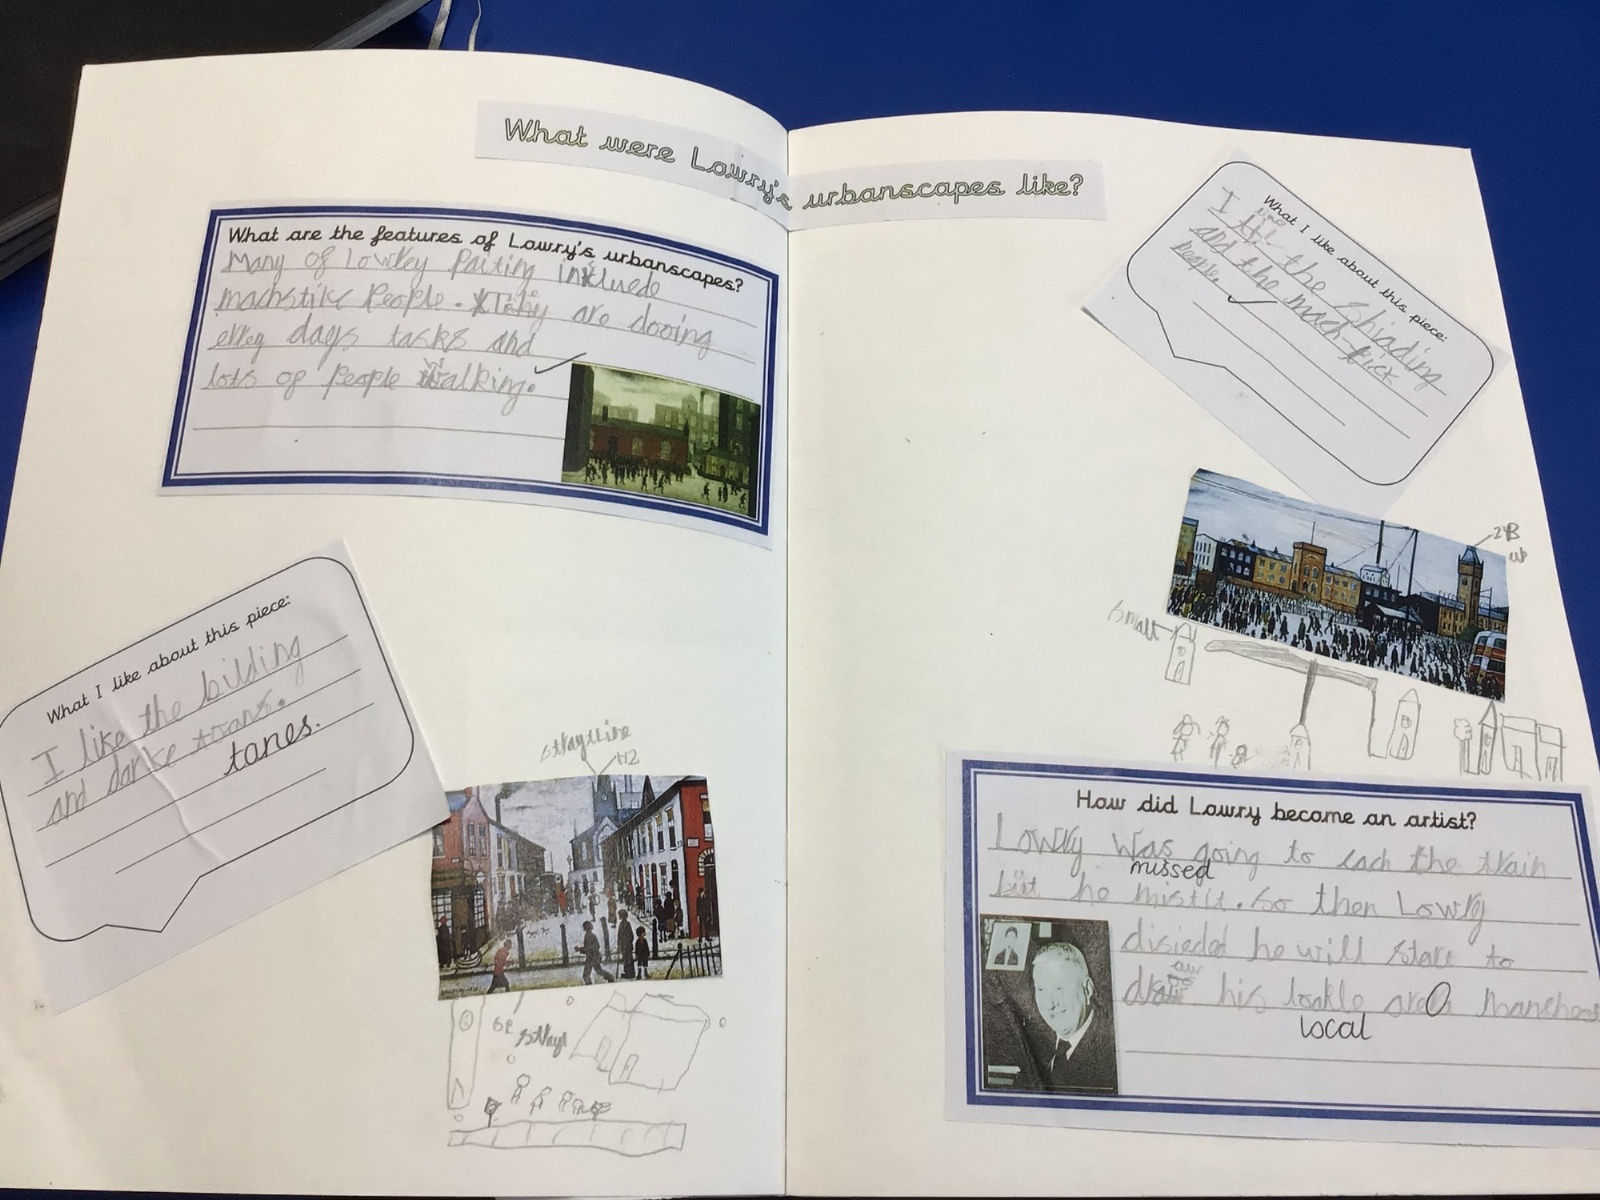 What were Lowry's urbanscapes like?
What are the features of Lowry's urbanscapes?
Many of lowrey Paiting include
machstike People. They are dooing
evrey days tasks and
lots of People walking.
What I like about this piece:
I like the bilding
and darke toans.
tones.
strayt line
H2
What I like about this piece:
I like the Shiading
and the mach-stick
People.
2B
up
Small
How did Lowry become an artist?
Lowry Was going to cach the train
missed
but he mistit. So then Lowry
disieded he will start to
draw his loakle area Manches
local